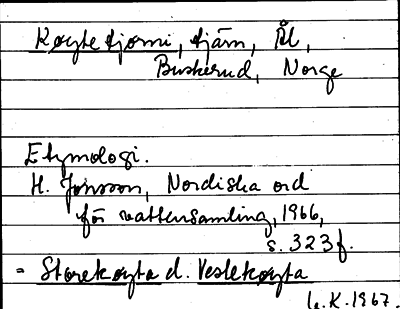 Køytetjørni, tjärn, Ål,
Buskerud, Norge
Etymologi.
H. Jonsson, Nordiska ord
för vattensamling, 1966,
s. 323f.
= Storekøyta el. Veslekøyta
K. 1967.